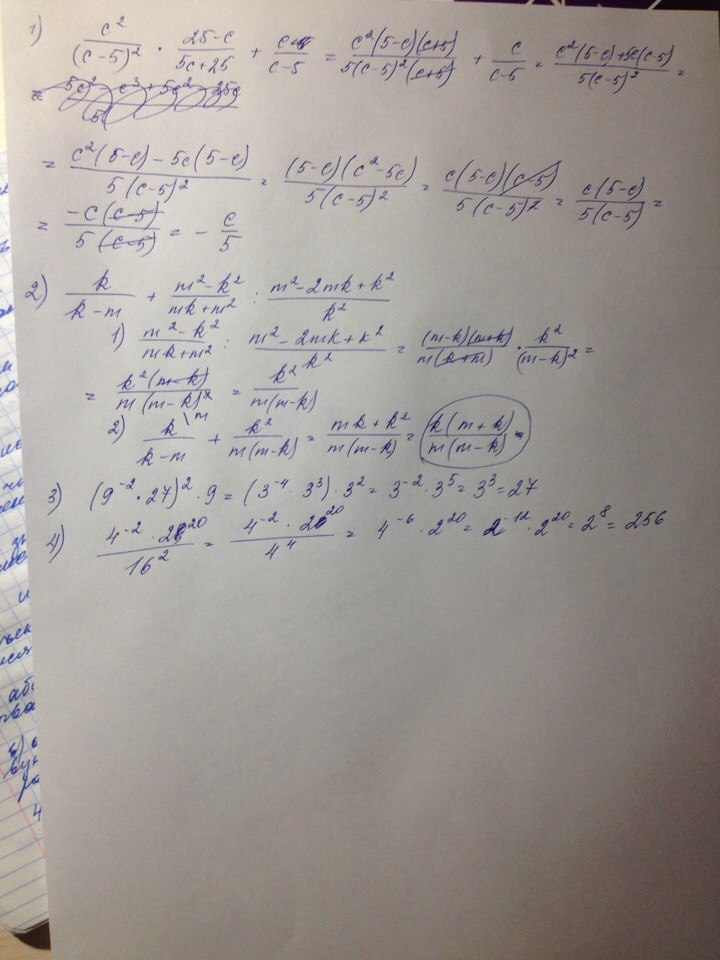 1) c²/(c-5)² · 25-c/5c+25 + c/c-5 = c²(5-c)(c+5)/5(c-5)²(c+5) + c/c-5 = c²(5-c)+5c(c-5)/5(c-5)² =
= c²(5-c)-5c(5-c)/5(c-5)² = (5-c)(c²-5c)/5(c-5)² = c(5-c)(c-5)/5(c-5)² = c(5-c)/5(c-5) =
= -c(c-5)/5(c-5) = - c/5
2) k/k-m + m²-k²/mk+m² : m²-2mk+k²/k²
1) m²-k²/mk+m² : m²-2mk+k²/k² = (m-k)(m+k)/m(k+m) · k²/(m-k)² =
= k²(m-k)/m(m-k)² = k²/m(m-k)
2) k\m/k-m + k²/m(m-k) = mk+k²/m(m-k) = k(m+k)/m(m-k)
3) (9⁻²·27)²·9 = (3⁻⁴·3³)·3² = 3⁻²·3⁵ = 3³ = 27
4) 4⁻²·2²⁰/16² = 4⁻²·2²⁰/4⁴ = 4⁻⁶·2²⁰ = 2⁻¹²·2²⁰ = 2⁸ = 256